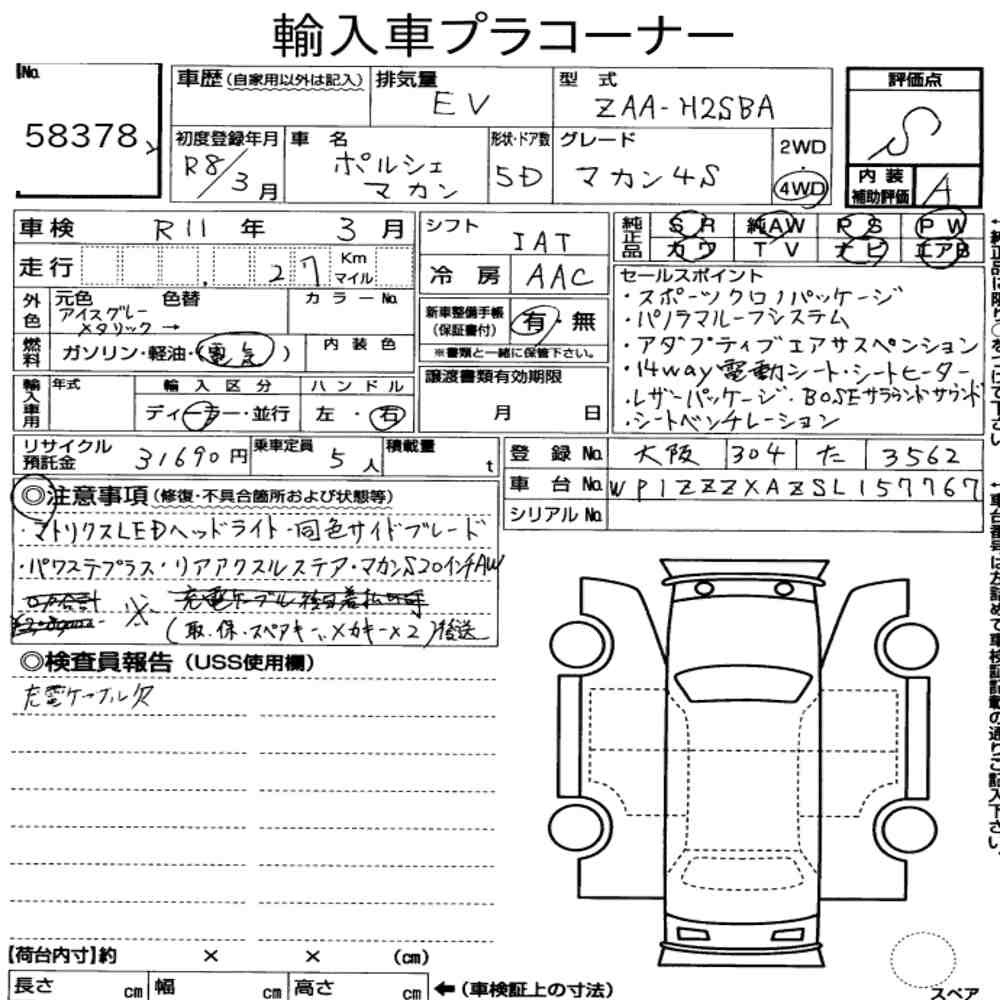 輸入車プラコーナー
No. 58378
車歴(自家用以外は記入) 排気量 EV 型式 ZAA-H2SBA 評価点 S
初度登録年月 R8/3月 車名 ポルシェ マカン 形状・ドア数 5D グレード マカン4S 2WD・4WD 内装補助評価 A
車検 R11年 3月 シフト IAT 純正品 SR 純AW PS PW
カワ TV ナビ エアB
走行 27 Km マイル 冷房 AAC
外色 元色 アイスグレーメタリック → 色替 カラーNo.
新車整備手帳(保証書付) 有・無
※書類と一緒に保管下さい。
燃料 ガソリン・軽油・(電気) 内装色
輸入車用 年式 輸入区分 ディーラー・並行 ハンドル 左・右
譲渡書類有効期限 月 日
セールスポイント
・スポーツクロノパッケージ
・パノラマルーフシステム
・アダプティブエアサスペンション
・14way電動シート・シートヒーター
・レザーパッケージ・BOSEサラウンドサウンド
・シートベンチレーション
リサイクル預託金 31690円 乗車定員 5人 積載量 t
登録No. 大阪 304 た 3562
車台No. WP1ZZZXAZSL157767
シリアルNo.
◎注意事項(修復・不具合箇所および状態等)
・マトリクスLEDヘッドライト・同色サイドブレード
・パワステプラス・リアアクスルステア・マカンS20インチAW
※
(取.保.スペアキー、メカキー×2)後送
◎検査員報告(USS使用欄)
充電ケーブル欠
【荷台内寸】約 × × (cm)
長さ cm 幅 cm 高さ cm ←(車検証上の寸法)
スペア
←純正品に限り○をつけて下さい
←車台番号は左詰めで車検証記載の通りご記入下さい。